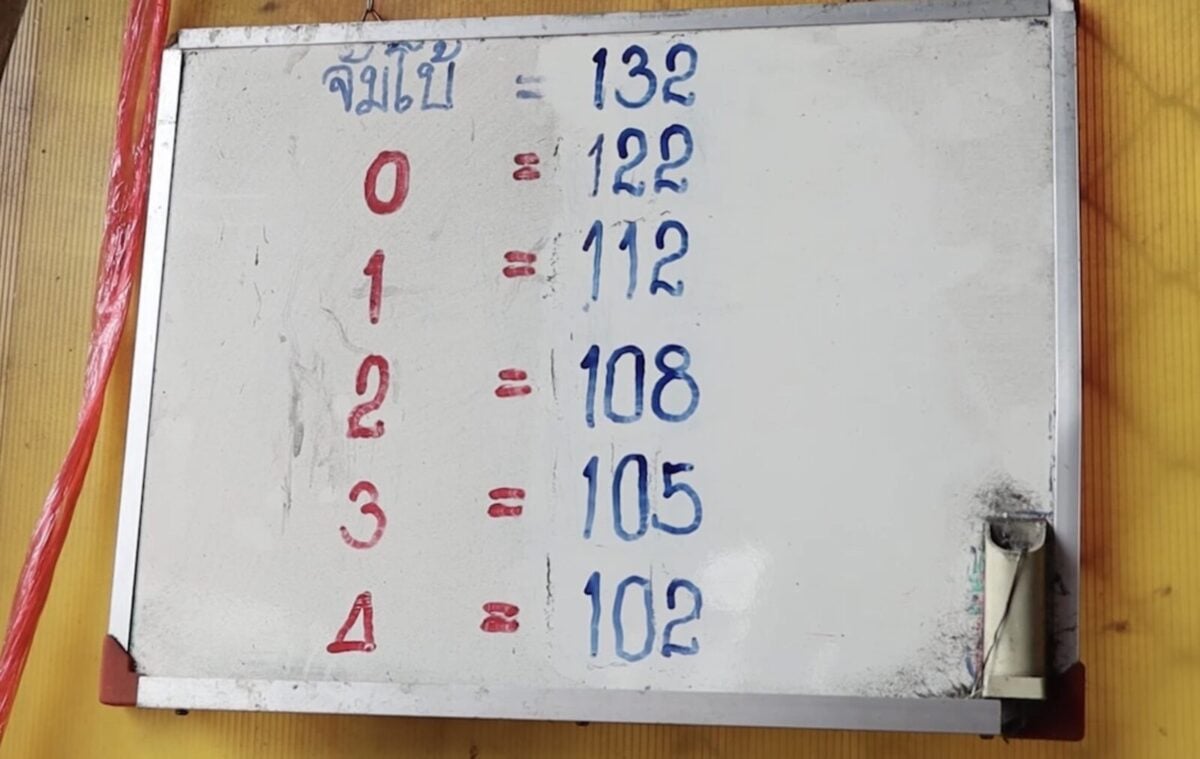 จัมโบ้ = 132
0 = 122
1 = 112
2 = 108
3 = 105
4 = 102